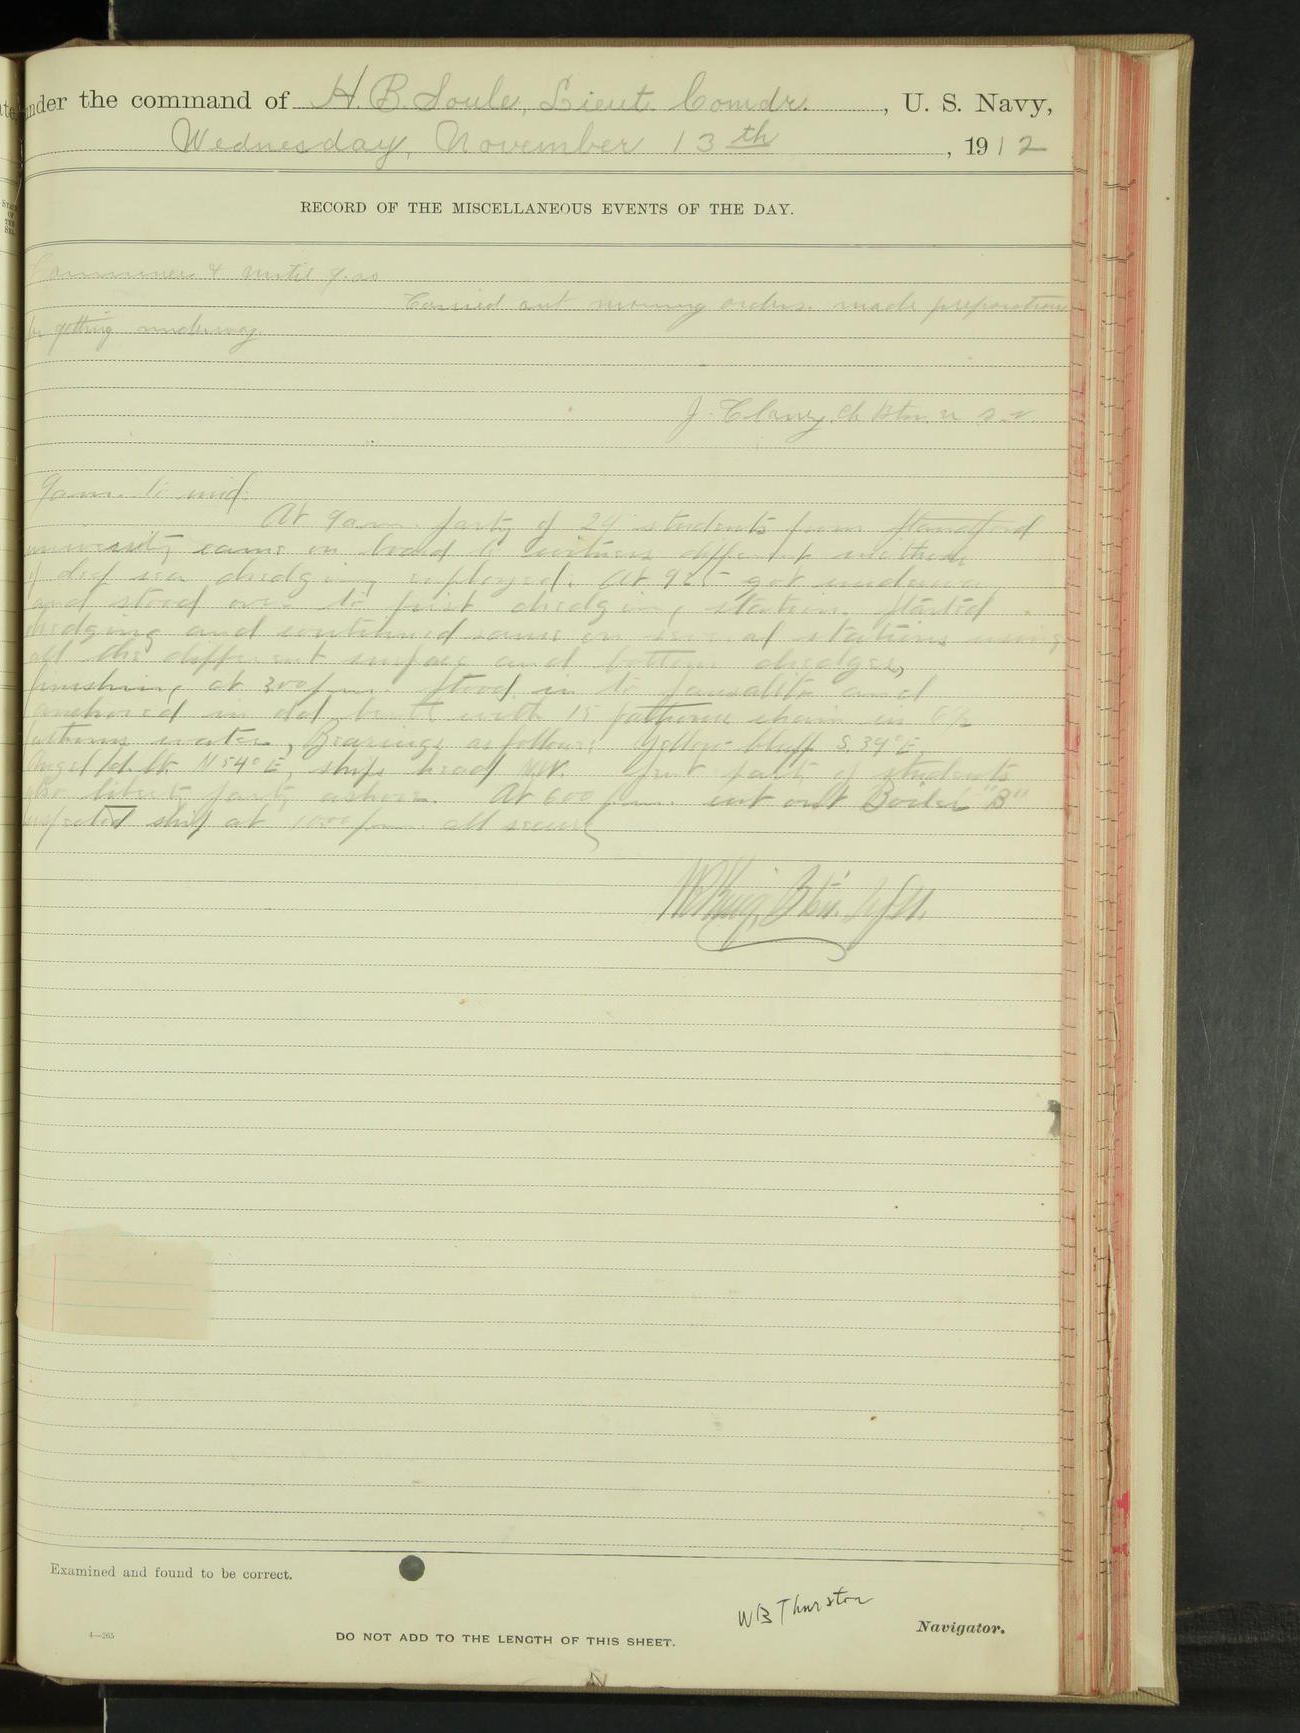 under the command of H. B. Soule, Lieut. Comdr., U. S. Navy,
Wednesday, November 13th, 1912
RECORD OF THE MISCELLANEOUS EVENTS OF THE DAY.
until 9.00
Carried out morning orders. made preparations
for getting underway
J. Clancy, Ch Btsn, U S. N.
9 a.m. to mid.
At 9 a.m. party of 24 students from Standford
university came on board to witness different methods
of deep sea dredging employed. At 925 got underway
and stood over to first dredging station. Started
dredging and continued same on several stations using
all the different surface and bottom dredges,
finishing at 300 p.m. Stood in to Sausalito and
anchored in with 15 fathoms chain in 6 1/2
fathoms water, Bearings as follows: Yellow bluff S 39° E.
Angel Id. lt. N 54° E, ships head NW. Sent party of students
also liberty party ashore. At 600 p.m. cut out Boiler "B"
inspected ship at 1000 p.m. all secure
Btsn. U.S.N.
Examined and found to be correct.
WB Thurston
Navigator.
4—265
DO NOT ADD TO THE LENGTH OF THIS SHEET.